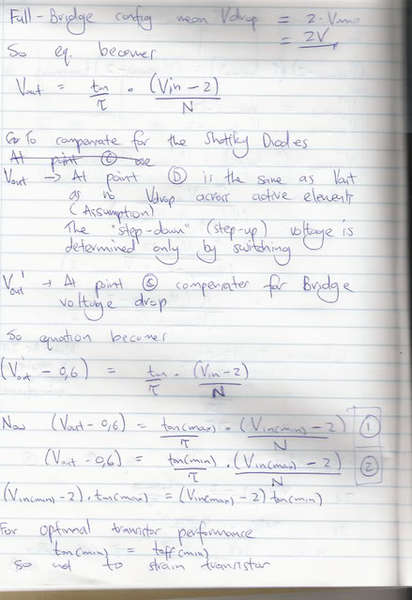 Full-Bridge config mean Vdrop = 2·Vmos
= 2V
So eq. becomes
Vout = ton/τ · (Vin – 2)/N
To compensate for the Shottky Diodes
At point C
Vout → At point D is the same as Vout
as no Vdrop across active elements
(Assumption)
The "step-down" (step-up) voltage is
determined only by switching
Vout' → At point C compensates for Bridge
voltage drop
So equation becomes
(Vout' – 0,6) = ton/τ · (Vin – 2)/N
Now (Vout – 0,6) = ton(max)/τ · (Vin(min) – 2)/N ①
(Vout – 0,6) = ton(min)/τ · (Vin(max) – 2)/N ②
(Vin(min) – 2) · ton(max) = (Vin(max) – 2) ton(min)
For optimal transistor performance
ton(min) = toff(min)
so not to strain transistor